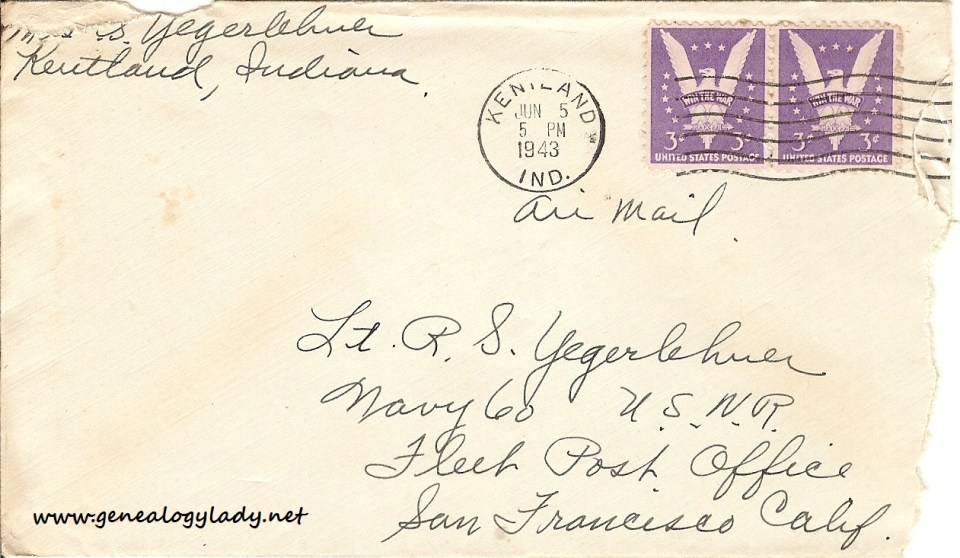 S. Yegerlehner
Kentland, Indiana.
KENTLAND
JUN 5
5 PM
1943
IND.
WIN THE WAR
3¢ 3¢
UNITED STATES POSTAGE
WIN THE WAR
3¢ 3¢
UNITED STATES POSTAGE
Air Mail.
Lt. R. S. Yegerlehner
Navy 60 U.S.N.R.
Fleet Post Office
San Francisco Calif.
www.genealogylady.net